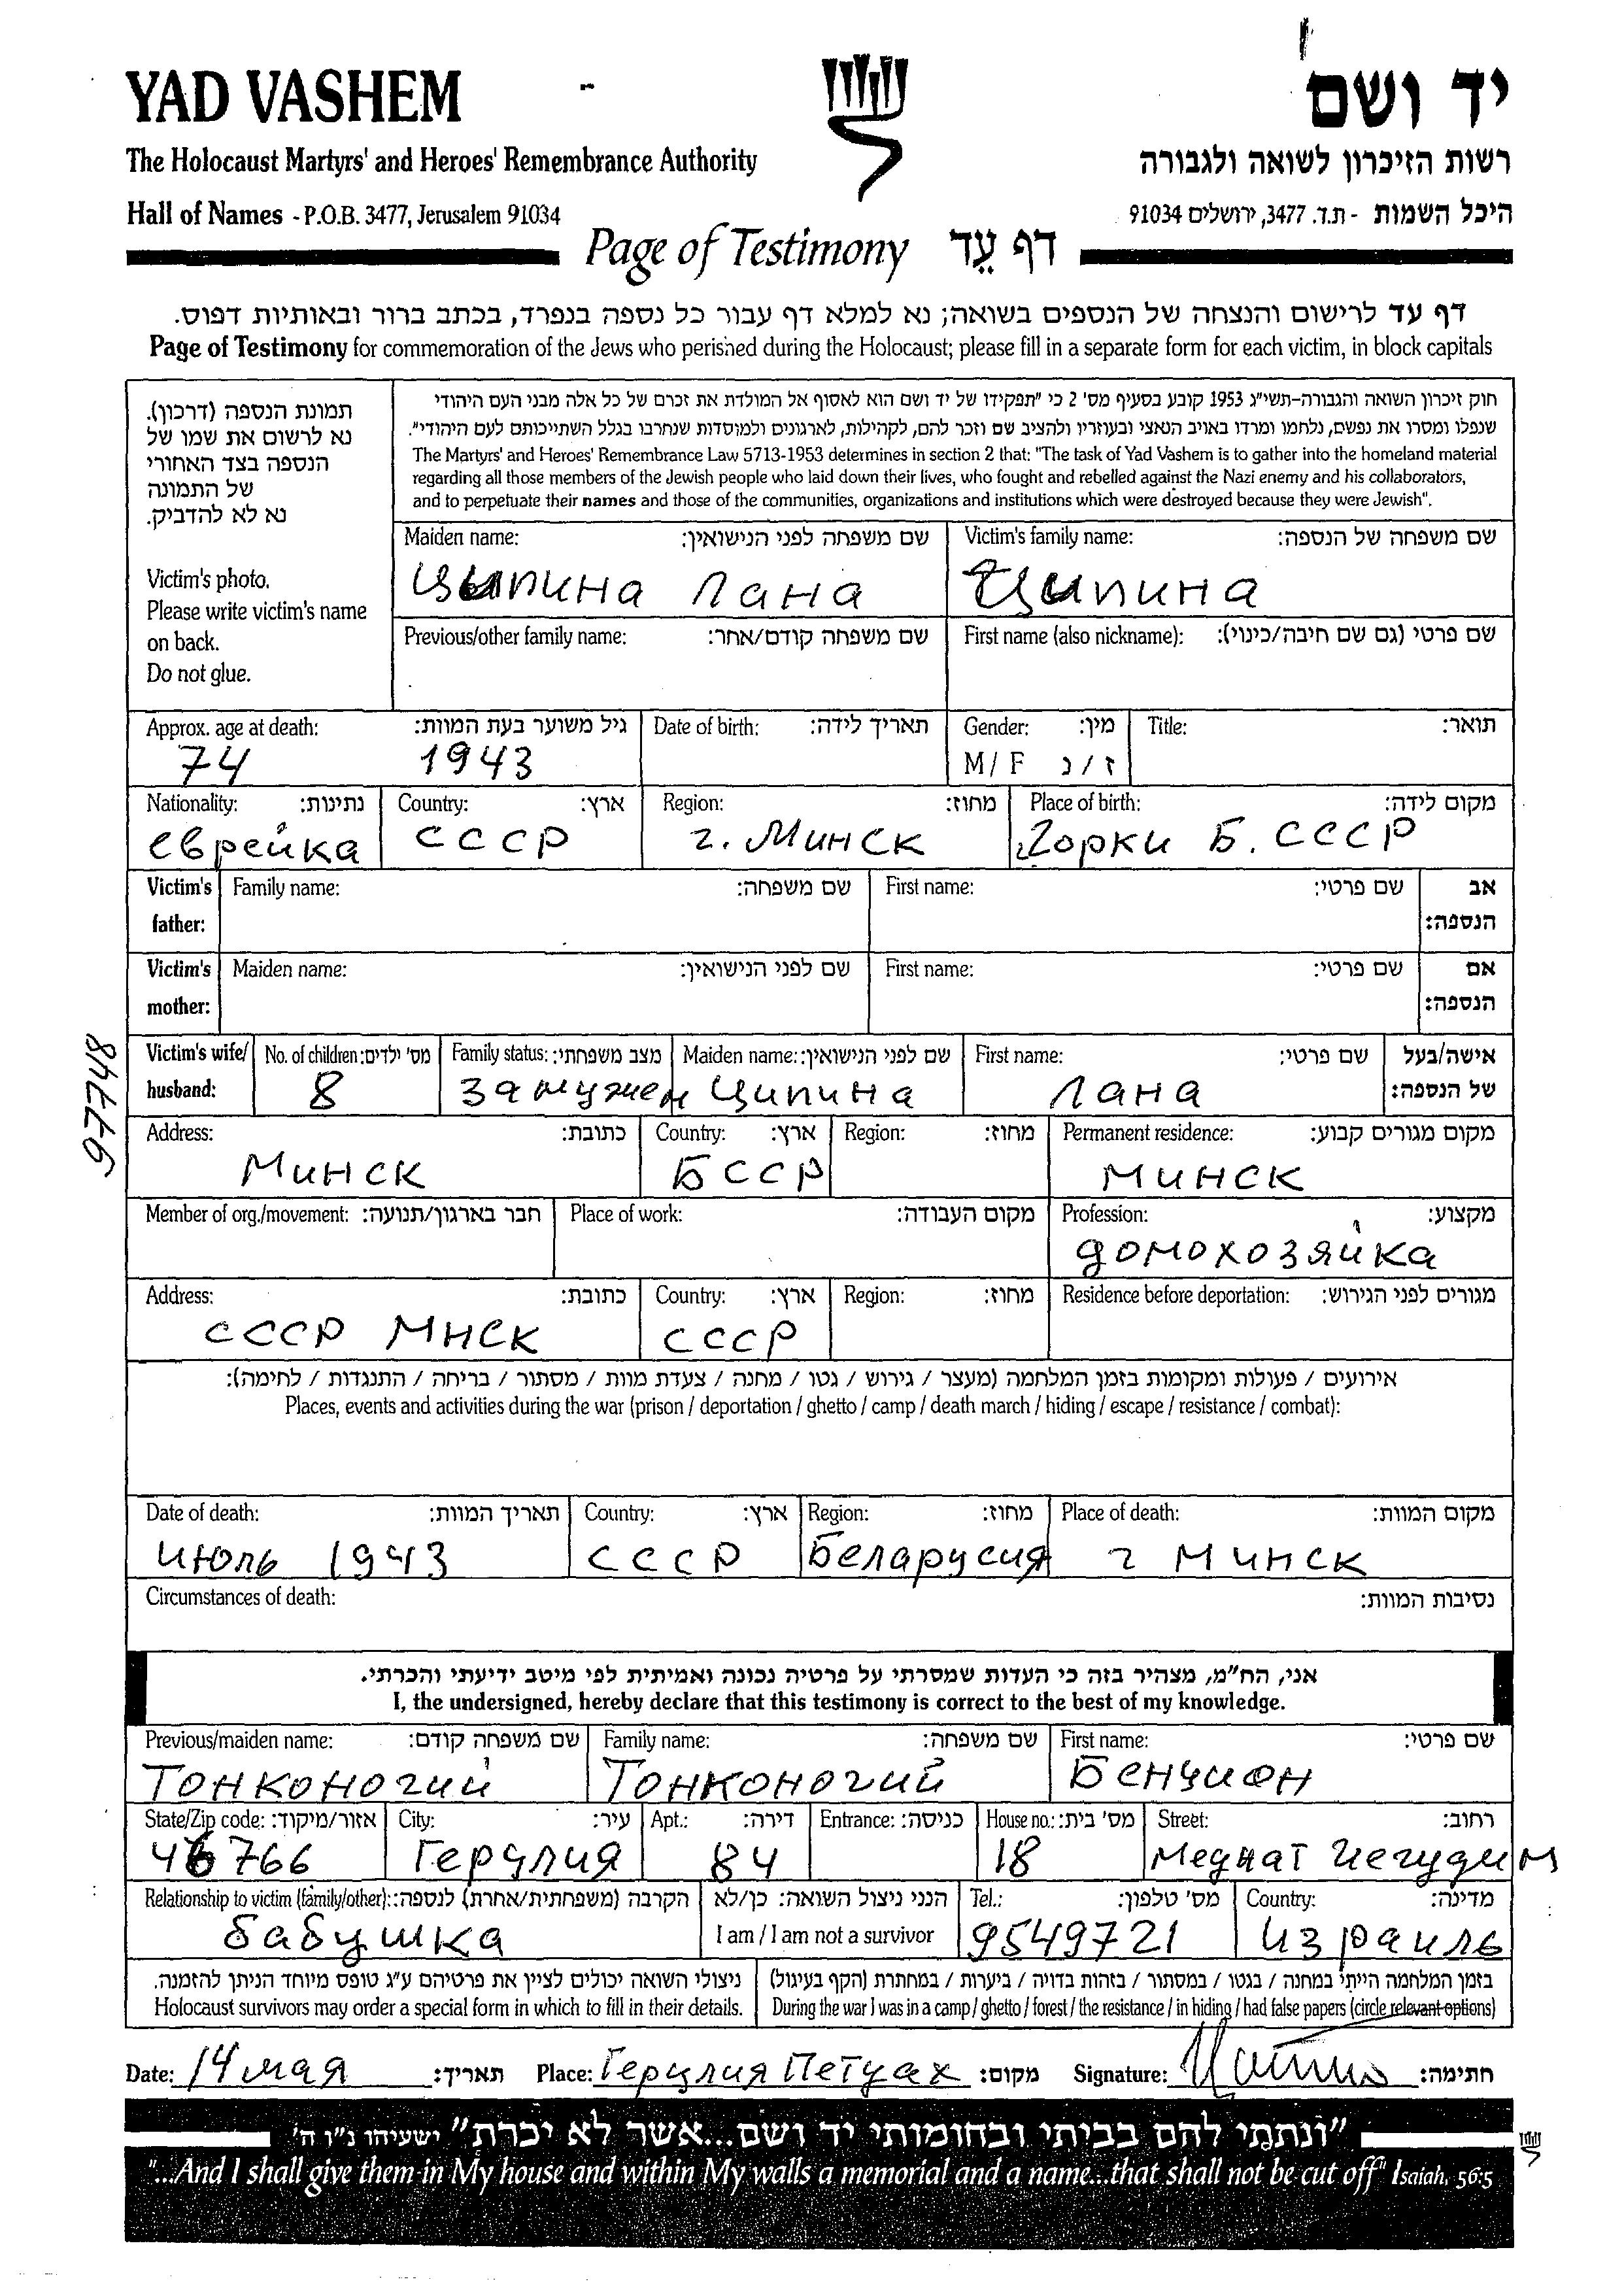 YAD VASHEM
יד ושם
The Holocaust Martyrs' and Heroes' Remembrance Authority
רשות הזיכרון לשואה ולגבורה
Hall of Names - P.O.B. 3477, Jerusalem 91034
היכל השמות - ת.ד. 3477, ירושלים 91034
Page of Testimony דף עֵד
דף עד לרישום והנצחה של הנספים בשואה; נא למלא דף עבור כל נספה בנפרד, בכתב ברור ובאותיות דפוס.
Page of Testimony for commemoration of the Jews who perished during the Holocaust; please fill in a separate form for each victim, in block capitals
תמונת הנספה (דרכון).
נא לרשום את שמו של
הנספה בצד האחורי
של התמונה
נא לא להדביק.
Victim's photo.
Please write victim's name
on back.
Do not glue.
חוק זיכרון השואה והגבורה-תשי"ג 1953 קובע בסעיף מס' 2 כי "תפקידו של יד ושם הוא לאסוף אל המולדת את זכרם של כל אלה מבני העם היהודי
שנפלו ומסרו את נפשם, נלחמו ומרדו באויב הנאצי ובעוזריו ולהציב שם וזכר להם, לקהילות, לארגונים ולמוסדות שנחרבו בגלל השתייכותם לעם היהודי".
The Martyrs' and Heroes' Remembrance Law 5713-1953 determines in section 2 that: "The task of Yad Vashem is to gather into the homeland material
regarding all those members of the Jewish people who laid down their lives, who fought and rebelled against the Nazi enemy and his collaborators,
and to perpetuate their names and those of the communities, organizations and institutions which were destroyed because they were Jewish".
Maiden name: שם משפחה לפני הנישואין: Victim's family name: שם משפחה של הנספה:
Цыпина Лана Ципина
Previous/other family name: שם משפחה קודם/אחר: First name (also nickname): שם פרטי (גם שם חיבה/כינוי):
Approx. age at death: גיל משוער בעת המוות: Date of birth: תאריך לידה: Gender: מין: Title: תואר:
74 1943 M / F ז / נ
Nationality: נתינות: Country: ארץ: Region: מחוז: Place of birth: מקום לידה:
еврейка СССР г. Минск Горки Б. СССР
Victim's father: Family name: שם משפחה: First name: שם פרטי: אב הנספה:
Victim's mother: Maiden name: שם לפני הנישואין: First name: שם פרטי: אם הנספה:
Victim's wife/ husband: No. of children: מס' ילדים: Family status: מצב משפחתי: Maiden name: שם לפני הנישואין: First name: שם פרטי: אישה/בעל של הנספה:
8 замужем Ципина Лана
97748
Address: כתובת: Country: ארץ: Region: מחוז: Permanent residence: מקום מגורים קבוע:
Минск БССР Минск
Member of org./movement: חבר בארגון/תנועה: Place of work: מקום העבודה: Profession: מקצוע:
домохозяйка
Address: כתובת: Country: ארץ: Region: מחוז: Residence before deportation: מגורים לפני הגירוש:
СССР МНСК СССР
אירועים / פעולות ומקומות בזמן המלחמה (מעצר / גירוש / גטו / מחנה / צעדת מוות / מסתור / בריחה / התנגדות / לחימה):
Places, events and activities during the war (prison / deportation / ghetto / camp / death march / hiding / escape / resistance / combat):
Date of death: תאריך המוות: Country: ארץ: Region: מחוז: Place of death: מקום המוות:
июль 1943 СССР Беларусия г Минск
Circumstances of death: נסיבות המוות:
אני, הח"מ, מצהיר בזה כי העדות שמסרתי על פרטיה נכונה ואמיתית לפי מיטב ידיעתי והכרתי.
I, the undersigned, hereby declare that this testimony is correct to the best of my knowledge.
Previous/maiden name: שם משפחה קודם: Family name: שם משפחה: First name: שם פרטי:
Тонконогий Тонконогий Бенцион
State/Zip code: אזור/מיקוד: City: עיר: Apt.: דירה: Entrance: כניסה: House no.: מס' בית: Street: רחוב:
46766 Герцлия 84 18 Меднат Иегудим
Relationship to victim (family/other): הקרבה (משפחתית/אחרת) לנספה: הנני ניצול השואה: כן/לא Tel.: מס' טלפון: Country: מדינה:
бабушка I am / I am not a survivor 9549721 Израиль
ניצולי השואה יכולים לציין את פרטיהם ע"ג טופס מיוחד הניתן להזמנה. בזמן המלחמה הייתי במחנה / בגטו / במסתור / בזהות בדויה / ביערות / במחתרת (הקף בעיגול)
Holocaust survivors may order a special form in which to fill in their details. During the war I was in a camp / ghetto / forest / the resistance / in hiding / had false papers (circle relevant options)
Date: 14 мая תאריך: Place: Герцлия Петуах מקום: Signature: חתימה:
"ונתתי להם בביתי ובחומותי יד ושם...אשר לא יכרת" ישעיהו נ"ו ה'
"...And I shall give them in My house and within My walls a memorial and a name...that shall not be cut off" Isaiah, 56:5